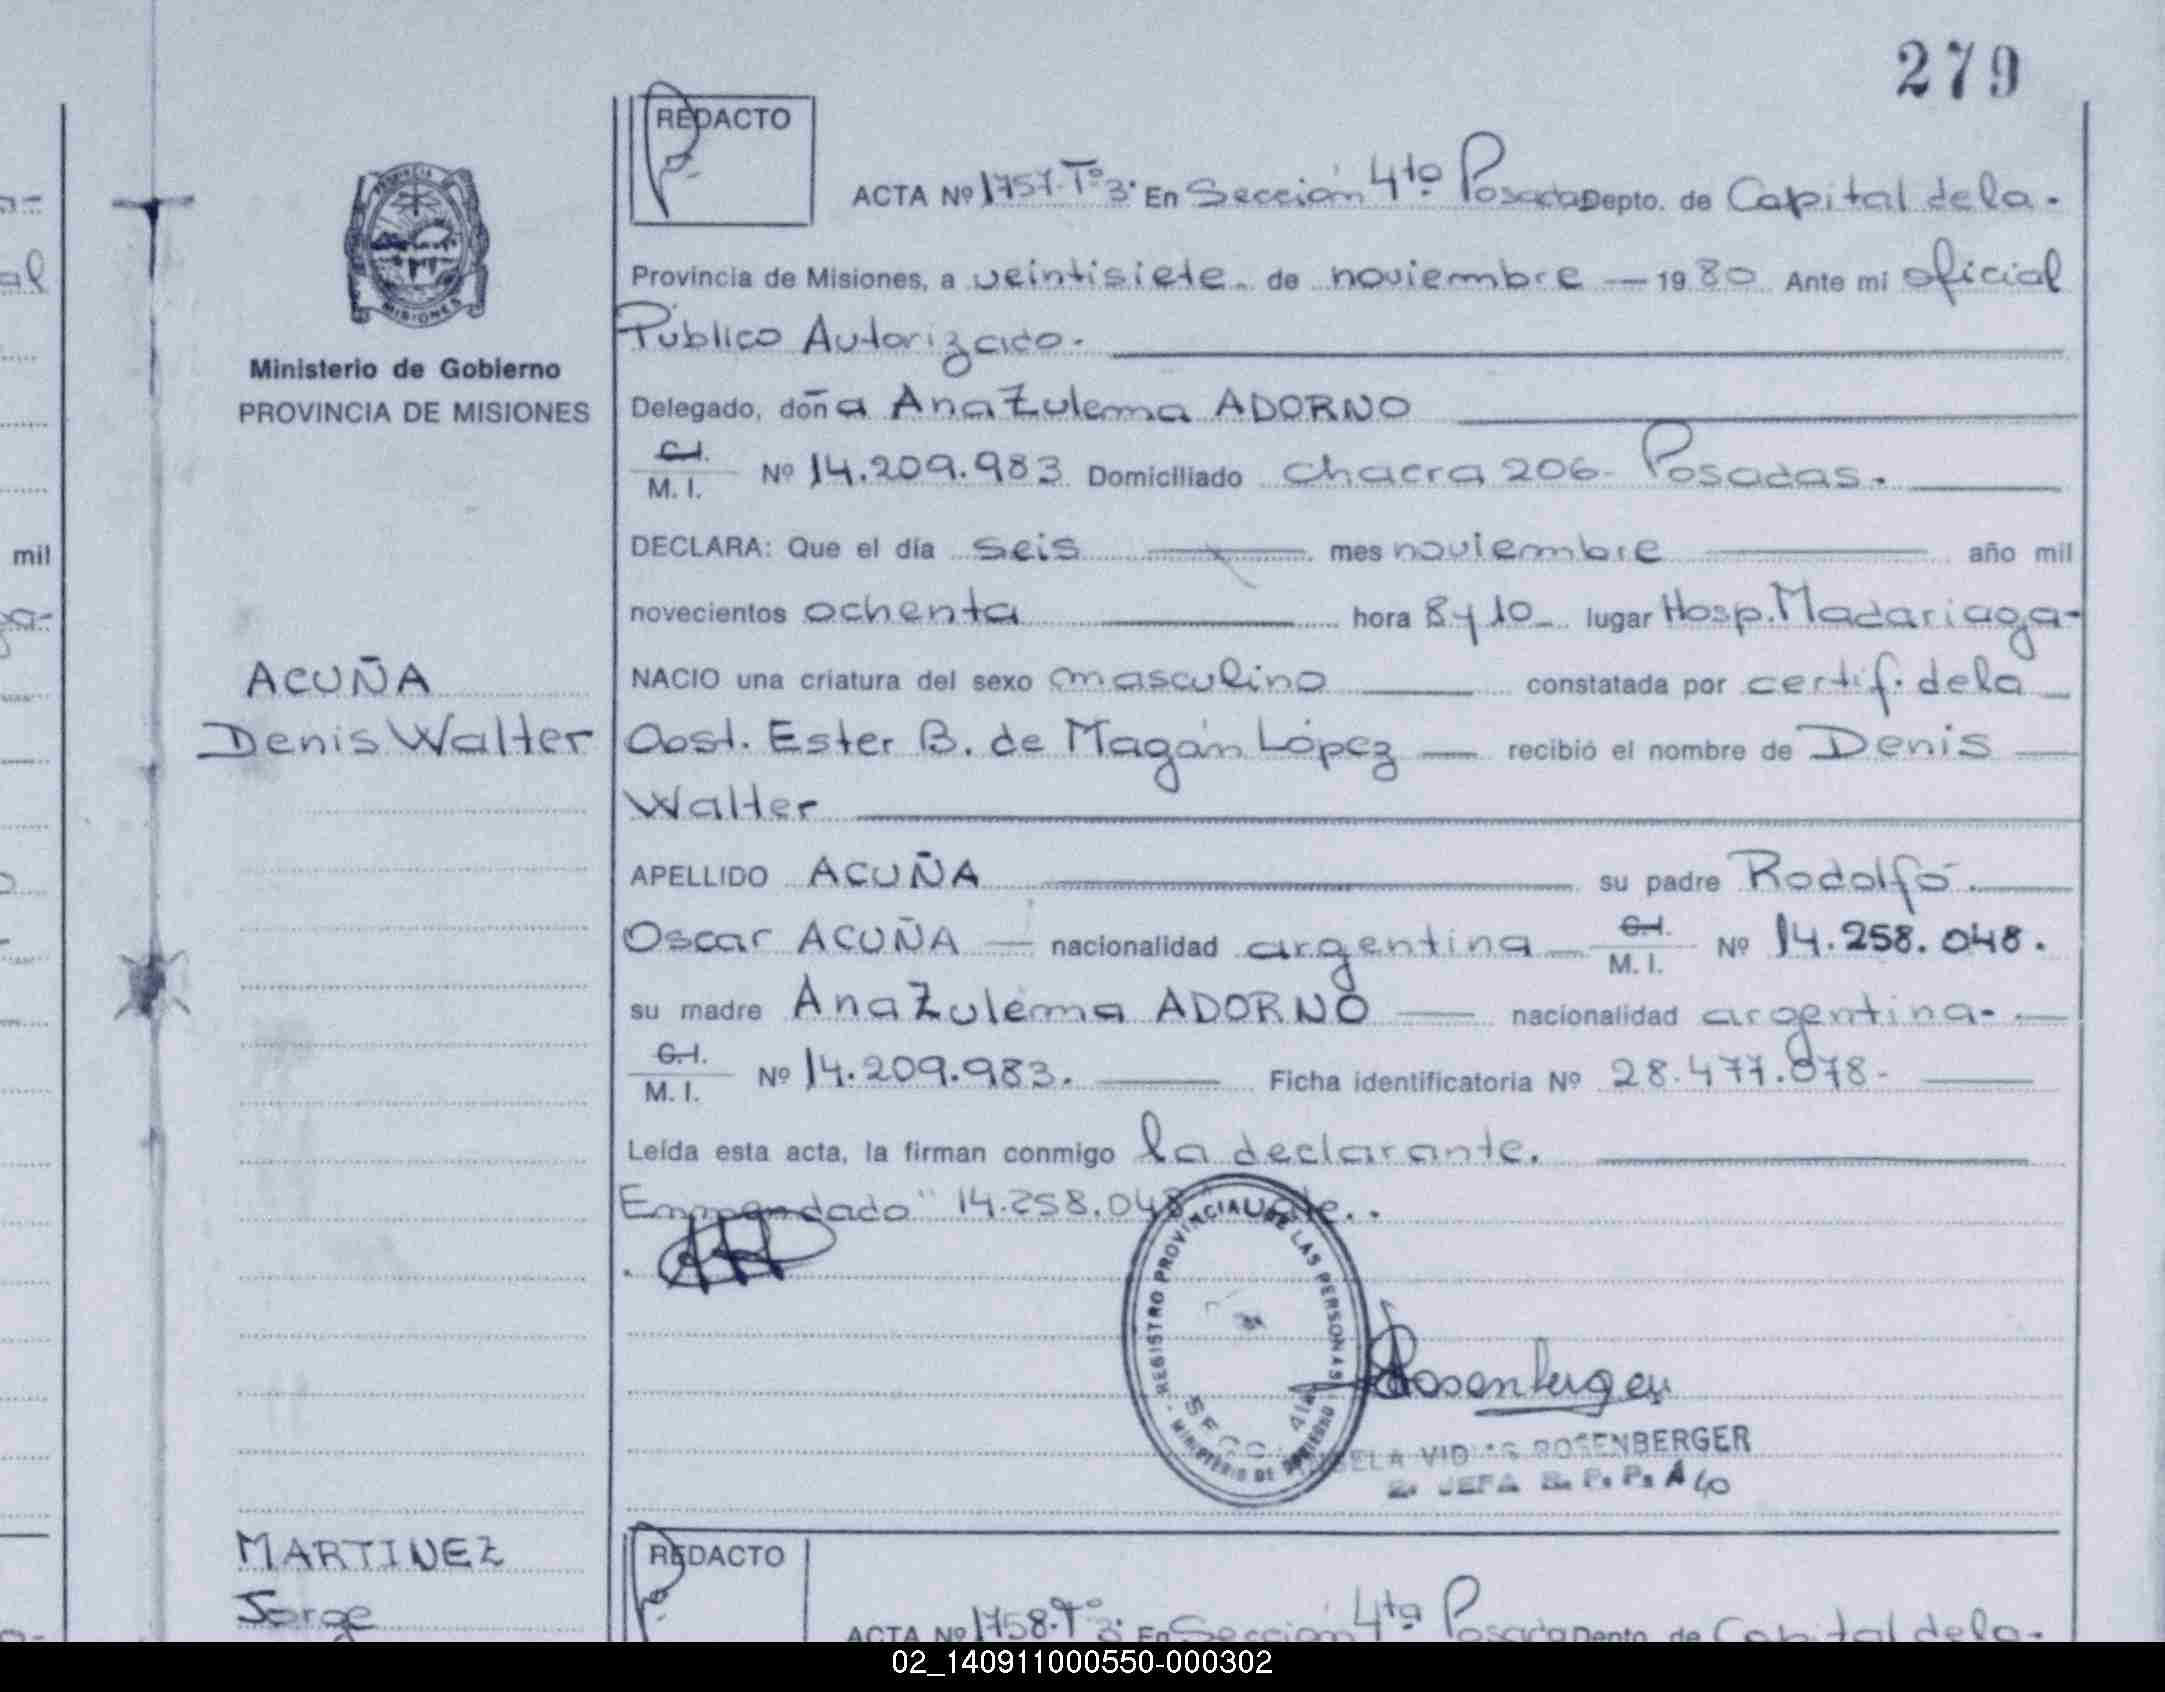 279
REDACTO
ACTA Nº 1757. Tº 3. En Sección 4ta Posadas Depto. de Capital de la.
Provincia de Misiones, a veintisiete. de noviembre — 19 80 Ante mi oficial
Público Autorizado.
Ministerio de Gobierno
PROVINCIA DE MISIONES
PROVINCIA
MISIONES
Delegado, doña Ana Zulema ADORNO
C.I.
M. I. Nº 14.209.983 Domiciliado chacra 206 - Posadas.
DECLARA: Que el día seis mes noviembre año mil
novecientos ochenta hora 8 y 10 lugar Hosp. Madariaga-
NACIO una criatura del sexo masculino constatada por certif. de la
ACUÑA
Denis Walter
Obst. Ester B. de Magán López — recibió el nombre de Denis
Walter
APELLIDO ACUÑA su padre Rodolfo.
Oscar ACUÑA — nacionalidad argentina — C.I.
M. I. Nº 14.258.048.
su madre Ana Zulema ADORNO — nacionalidad argentina-
C.I.
M. I. Nº 14.209.983. Ficha identificatoria Nº 28.477.878-
Leída esta acta, la firman conmigo la declarante.
Enmendado "14.258.048" Vale..
REGISTRO PROVINCIAL DE LAS PERSONAS
MINISTERIO DE GOBIERNO
SECC 4ta
Rosenberger
ROSENBERGER
2. JEFA R. P. P. A 40
MARTINEZ
Jorge
REDACTO
ACTA Nº 1758. Tº 3. En Sección 4ta Posadas Depto. de Capital de la-
mil
al
02_140911000550-000302